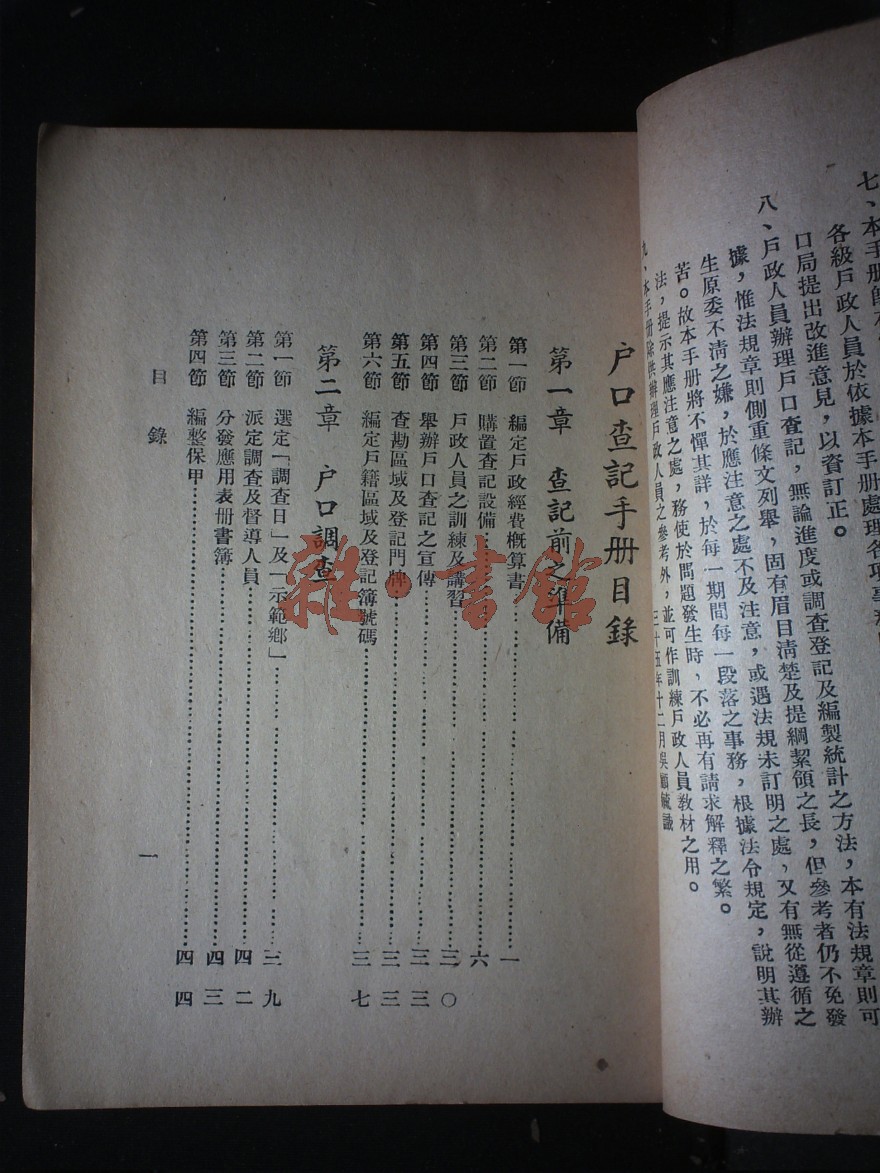 七、本手册
各級戶政人員於依據本手册處理各項事
口局提出改進意見，以資訂正。
八、戶政人員辦理戶口查記，無論進度或調查登記及編製統計之方法，本有法規章則可
據，惟法規章則側重條文列舉，固有眉目清楚及提綱絜領之長，但參考者仍不免發
生原委不清之嫌，於應注意之處不及注意，或遇法規未訂明之處，又有無從遵循之
苦。故本手册將不憚其詳，於每一期間每一段落之事務，根據法令規定，說明其辦
法，提示其應注意之處，務使於問題發生時，不必再有請求解釋之繁。
九、本手册除供辦理戶政人員之參考外，並可作訓練戶政人員教材之用。
三十五年十二月吳顧毓識
户口查記手册目錄
第一章 查記前之準備
第一節 編定戶政經費概算書 一
第二節 購置查記設備 六
第三節 戶政人員之訓練及講習 三〇
第四節 舉辦戶口查記之宣傳 三三
第五節 查勘區域及登記門牌 三三
第六節 編定戶籍區域及登記簿號碼 三七
第二章 戶口調查
第一節 選定「調查日」及「示範鄉」 三九
第二節 派定調查及督導人員 四二
第三節 分發應用表册書簿 四三
第四節 編整保甲 四四
目錄
一
雜·書館